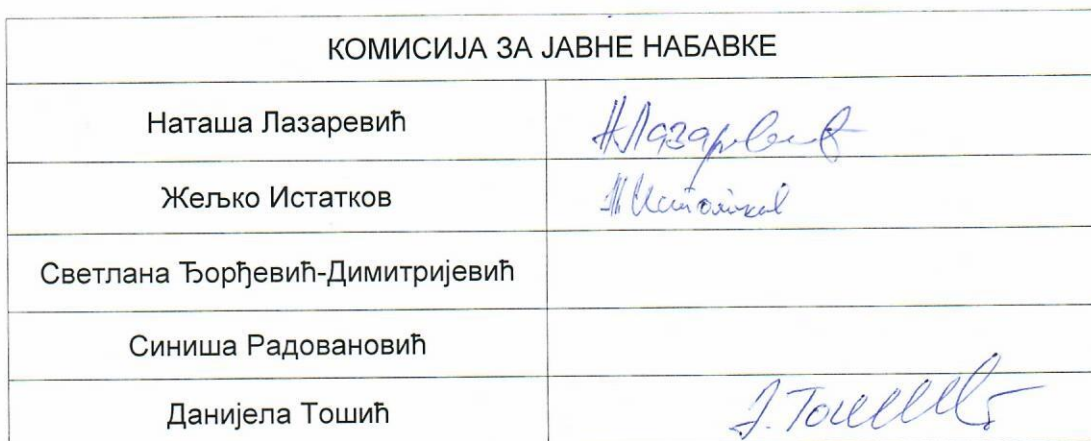 КОМИСИЈА ЗА ЈАВНЕ НАБАВКЕ
Наташа Лазаревић
Н Лазаревић
Жељко Истатков
Ж Истатков
Светлана Ђорђевић-Димитријевић
Синиша Радовановић
Данијела Тошић
Д. Тошић